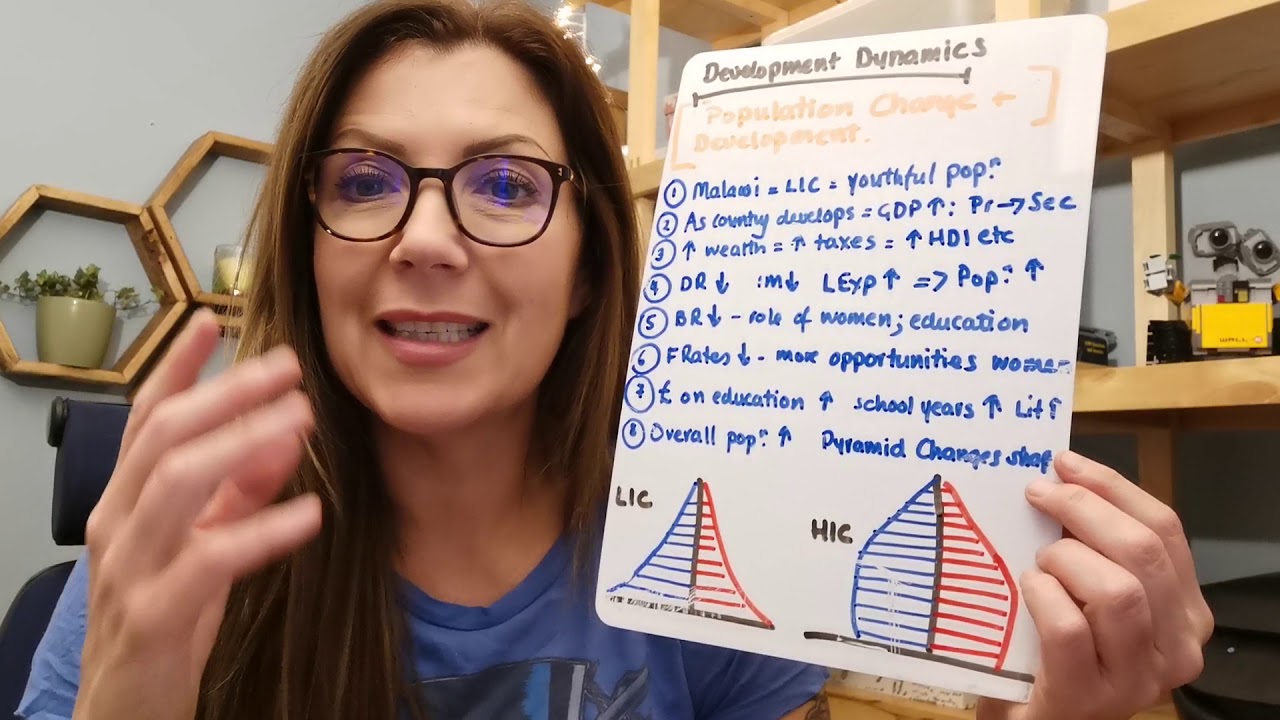 Development Dynamics
[Population Change +
Development.]
① Malawi = LIC = youthful popⁿ
② As country develops = GDP↑: Pr → Sec
③ ↑ wealth = ↑ taxes = ↑ HDI etc
④ DR↓ :m↓ LExp↑ => Popⁿ ↑
⑤ BR↓ - role of women; education
⑥ FRates↓ - more opportunities women
⑦ £ on education ↑ school years ↑ Lit↑
⑧ Overall popⁿ ↑ Pyramid Changes shap
LIC
HIC
WALL